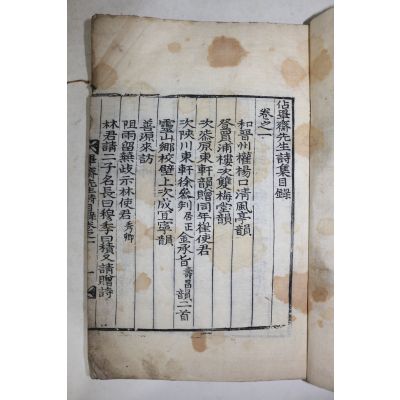 佔畢齋先生詩集目錄
卷之一
和晉州權楊口清風亭韻
登蓋浦樓次雙梅堂韻
次漆原東軒韻贈同年崔使君
次陜川東軒徐參判居正金承旨壽寧韻二首
靈山鄉校壁上次成宜寧韻
善源來訪
阻雨留蕪歧示林使君秀卿
林君請二子名長曰穆季曰積又請贈詩
畢齋先生詩目錄卷之一
一